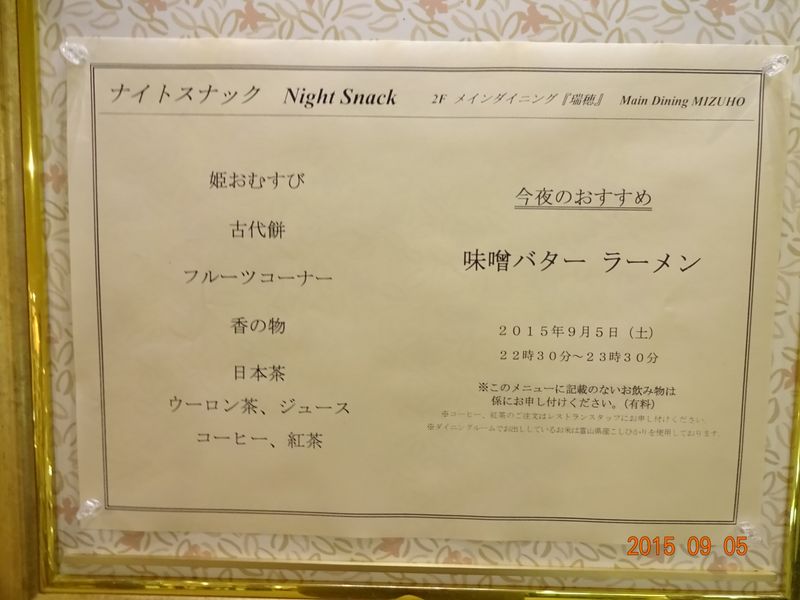 ナイトスナック Night Snack 2F メインダイニング『瑞穂』 Main Dining MIZUHO
姫おむすび
古代餅
フルーツコーナー
香の物
日本茶
ウーロン茶、ジュース
コーヒー、紅茶
今夜のおすすめ
味噌バター ラーメン
2015年9月5日（土）
22時30分～23時30分
※このメニューに記載のないお飲み物は
係にお申し付けください。（有料）
※コーヒー、紅茶のご注文はレストランスタッフにお申し付けください。
※ダイニングルームでお出ししているお米は富山県産こしひかりを使用しております。
2015 09 05